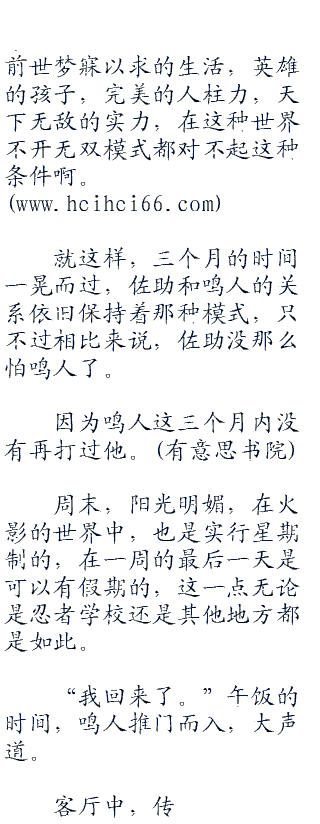 前世梦寐以求的生活，英雄
的孩子，完美的人柱力，天
下无敌的实力，在这种世界
不开无双模式都对不起这种
条件啊。
(www.hcihci66.com)
就这样，三个月的时间
一晃而过，佐助和鸣人的关
系依旧保持着那种模式，只
不过相比来说，佐助没那么
怕鸣人了。
因为鸣人这三个月内没
有再打过他。(有意思书院)
周末，阳光明媚，在火
影的世界中，也是实行星期
制的，在一周的最后一天是
可以有假期的，这一点无论
是忍者学校还是其他地方都
是如此。
“我回来了。”午饭的
时间，鸣人推门而入，大声
道。
客厅中，传